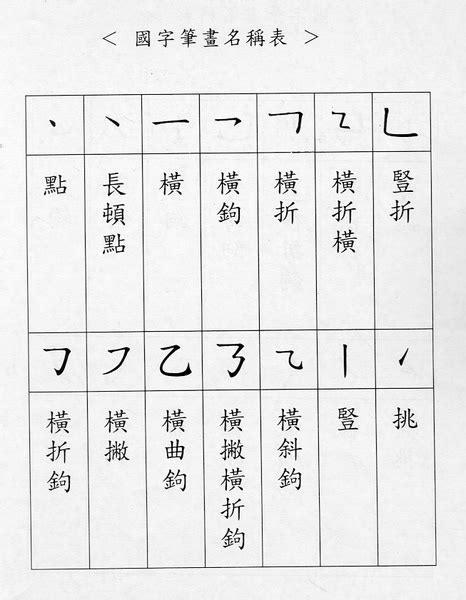 < 國字筆畫名稱表 >
丶 ㇔ 一 乛 ㇕ ㇍ ㇗
點
長頓點
橫
橫鉤
橫折
橫折橫
豎折
㇆ ㇇ 乙 ㇌ ㇈ 丨 ㇀
橫折鉤
橫撇
橫曲鉤
橫撇橫折鉤
橫斜鉤
豎
挑